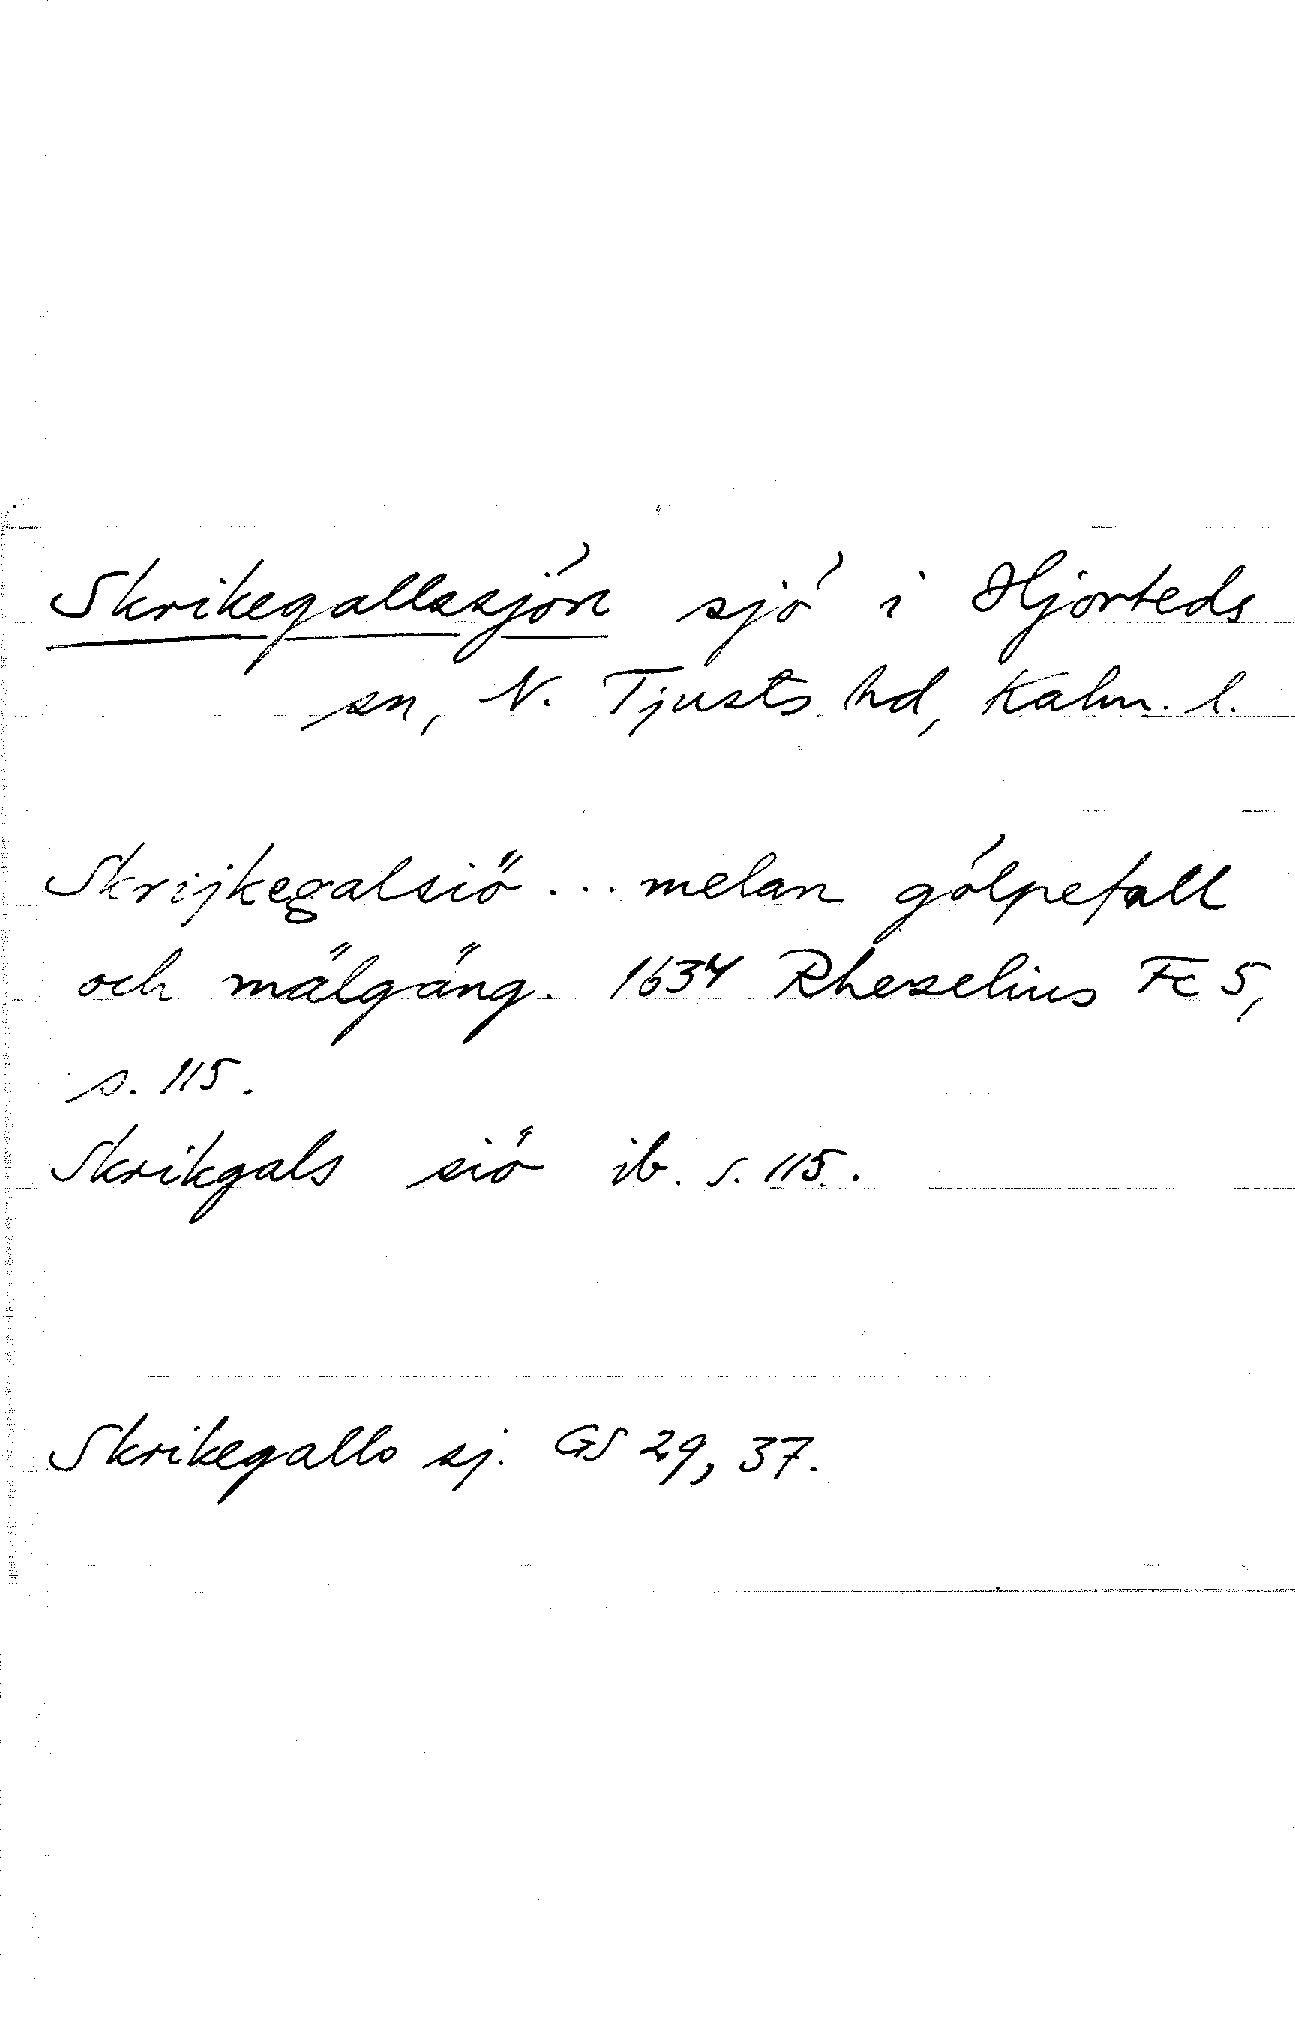 Skrikegallssjön sjö i Hjorteds
sn, N. Tjusts hd, Kalm. l.
Skrijkegalsiö... melan gölpefall
och mälgäng. 1634 Rhezelius Fc 5,
s. 115.
Skrikgals siö ib. s. 115.
Skrikegalls sj. GS 29, 37.